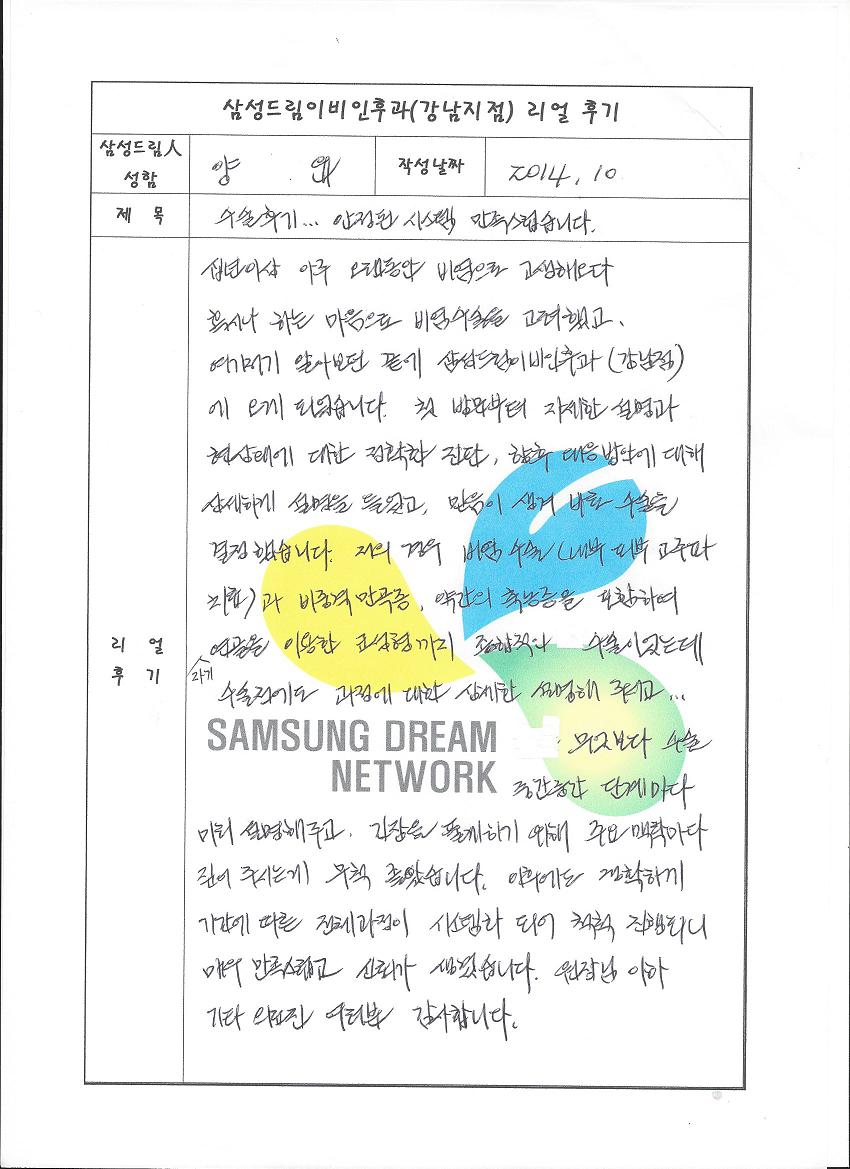 삼성드림이비인후과(강남지점) 리얼 후기
삼성드림人
성함
양
작성날짜
2014. 10
제 목
수술후기... 안정된 시스템, 만족스럽습니다.
리 얼
후 기
십년이상 아주 오랫동안 비염으로 고생해오다
혹시나 하는 마음으로 비염수술을 고려했고,
여기저기 알아보던 끝에 삼성드림이비인후과 (강남점)
에 오게 되었습니다. 첫 방문부터 자세한 설명과
현상태에 대한 정확한 진단, 향후 대응방안에 대해
상세하게 설명을 들었고, 믿음이 생겨 바로 수술을
결정했습니다. 저의 경우 비염 수술 (내부 피부 고주파
치료)과 비중격 만곡증, 약간의 축농증을 포함하여
자가
연골을 이용한 코성형까지 종합적인 수술이었는데
수술전에도 과정에 대한 상세한 설명해 주시고...
무엇보다 수술
중간중간 단계마다
SAMSUNG DREAM
NETWORK
미리 설명해주고, 긴장을 풀게하기 위해 주요 맥락마다
짚어 주시는게 무척 좋았습니다. 이후에도 정확하게
시간에 따른 전체과정이 시스템화 되어 척척 진행되니
매우 만족스럽고 신뢰가 생겼습니다. 원장님 이하
기타 의료진 여러분 감사합니다.